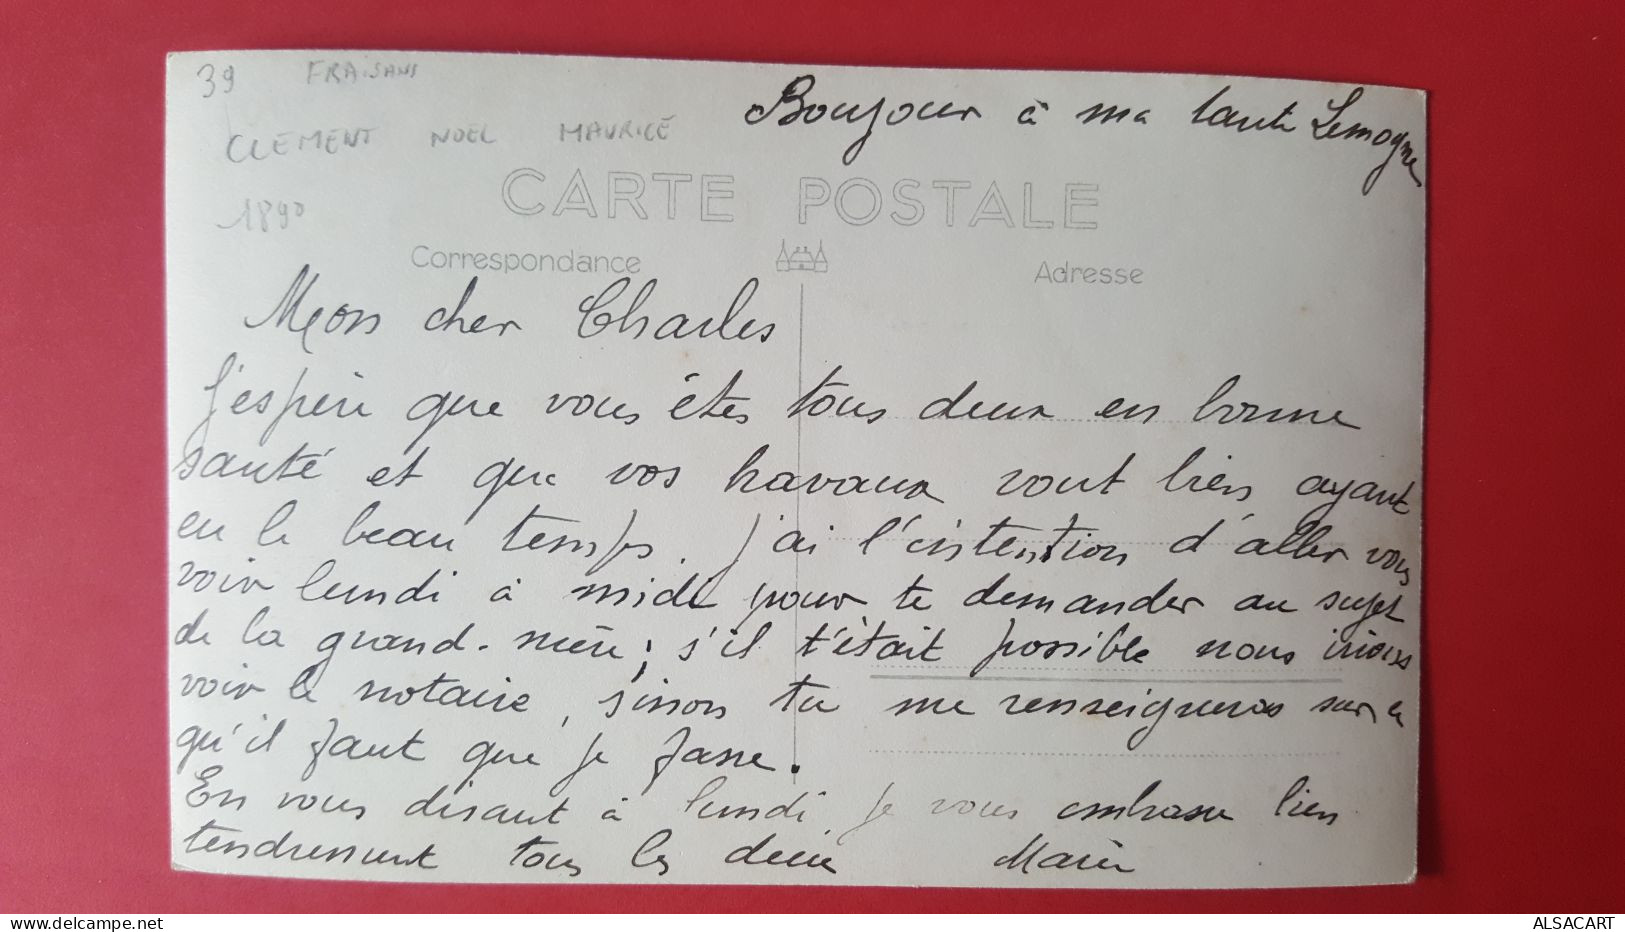 39 FRAISANS
Bonjour à ma tante Lemogne
CLEMENT NOEL MAURICE
CARTE POSTALE
1890
Correspondance
Adresse
Mon cher Charles
J'espère que vous êtes tous deux en bonne
santé et que vos travaux vont bien ayant
eu le beau temps. J'ai l'intention d'aller vous
voir lundi à midi pour te demander au sujet
de la grand-mère; s'il t'était possible nous irions
voir le notaire, sinon tu me renseigneras sur ce
qu'il faut que je fasse.
En vous disant à lundi je vous embrasse bien
tendrement tous les deux Marie
delcampe.net
ALSACART